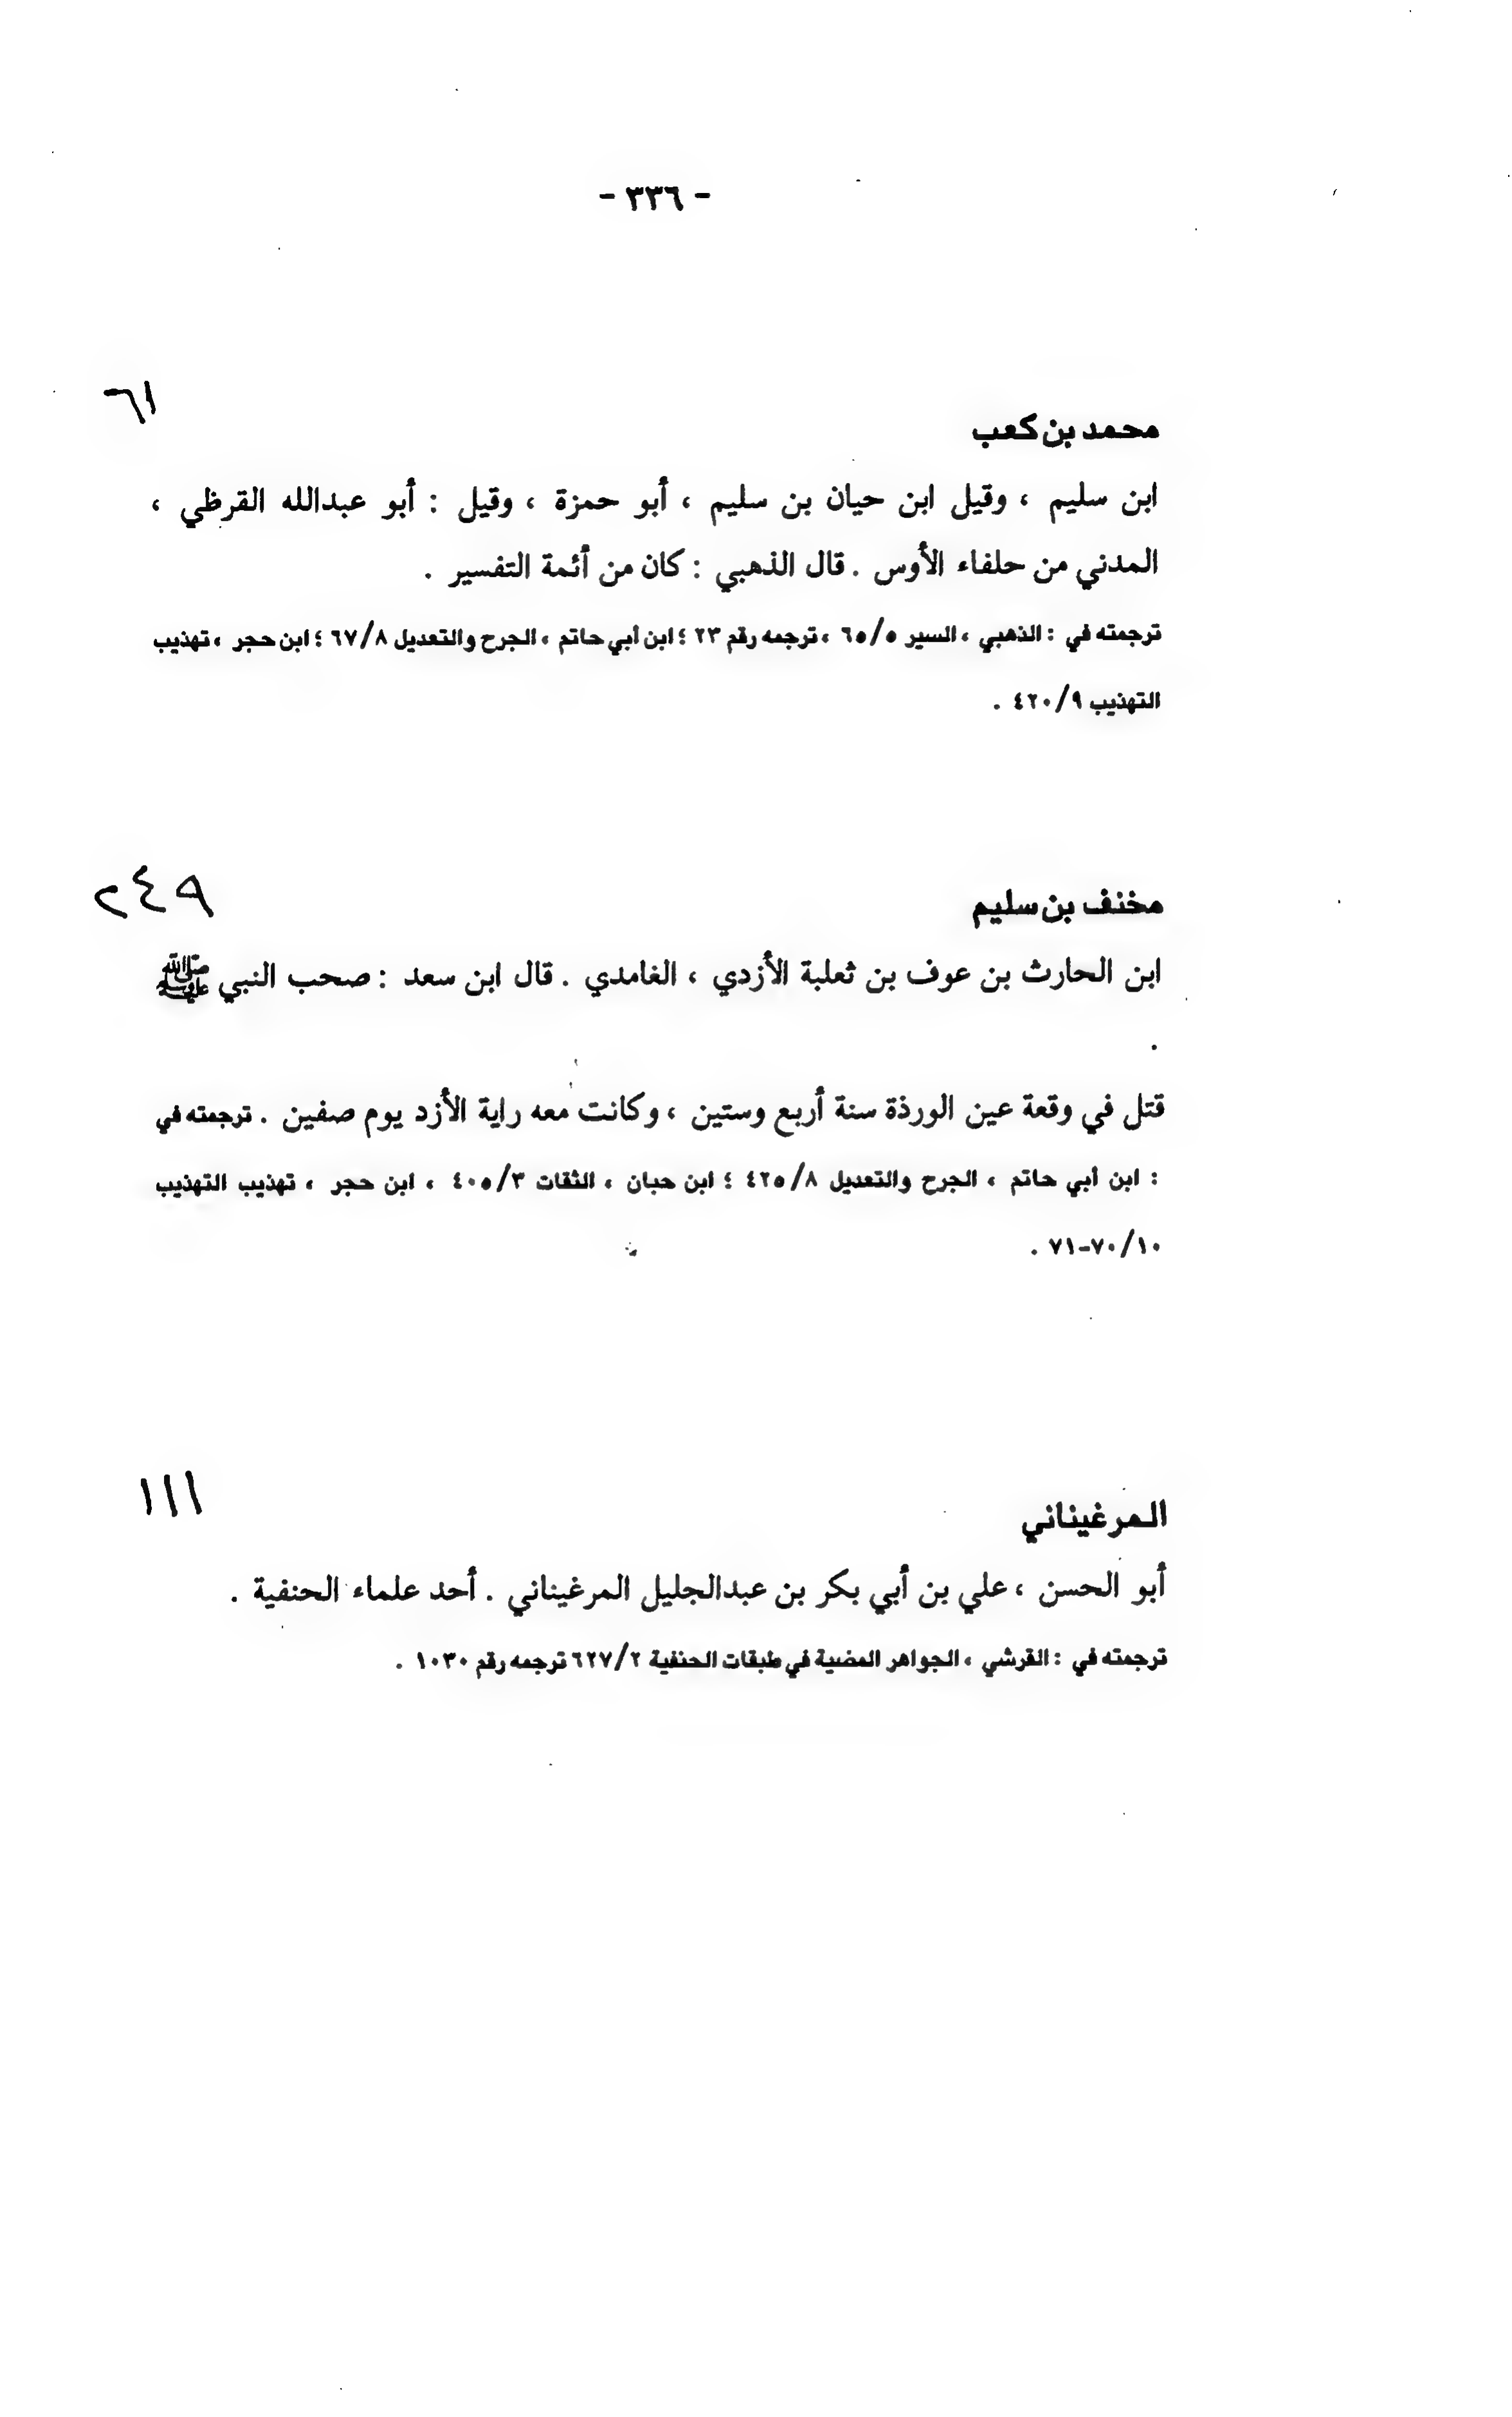 - ٣٣٦ -
٦١
محمد بن كعب
ابن سليم ، وقيل ابن حيان بن سليم ، أبو حمزة ، وقيل : أبو عبدالله القرظي ،
المدني من حلفاء الأوس . قال الذهبي : كان من أئمة التفسير .
ترجمته في : الذهبي ، السير ٦٥/٥ ، ترجمه رقم ٢٣ ؛ ابن أبي حاتم ، الجرح والتعديل ٦٧/٨ ؛ ابن حجر ، تهذيب
التهذيب ٤٢٠/٩ .
٢٤٩
مخنف بن سليم
ابن الحارث بن عوف بن ثعلبة الأزدي ، الغامدي . قال ابن سعد : صحب النبي ﷺ
.
قتل في وقعة عين الورذة سنة أربع وستين ، وكانت معه راية الأزد يوم صفين . ترجمته في
: ابن أبي حاتم ، الجرح والتعديل ٤٢٥/٨ ؛ ابن حبان ، الثقات ٤٠٥/٣ ، ابن حجر ، تهذيب التهذيب
٧٠/١٠-٧١ .
١١١
المرغيناني
أبو الحسن ، علي بن أبي بكر بن عبدالجليل المرغيناني . أحد علماء الحنفية .
ترجمته في : القرشي ، الجواهر المضية في طبقات الحنفية ٦٢٧/٢ ترجمه رقم ١٠٣٠ .